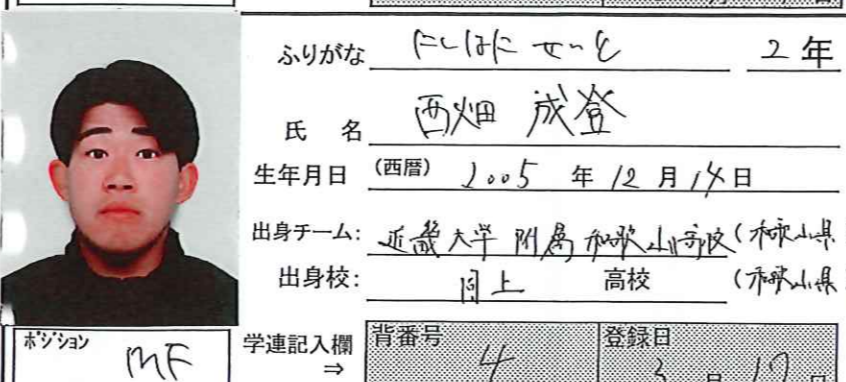 ふりがな にしはた せいと 2年
氏 名 西畑 成登
生年月日 (西暦) 2005 年 12 月 14 日
出身チーム: 近畿大学附属和歌山高校 (和歌山県
出身校: 同上 高校 (和歌山県
ポジション MF
学連記入欄 ⇒
背番号 4
登録日 3 月 17 日